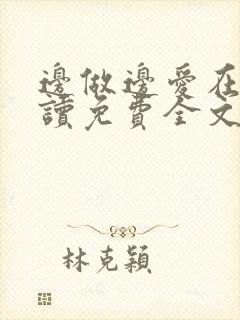 邊做邊愛在
讀免費全文
林克穎